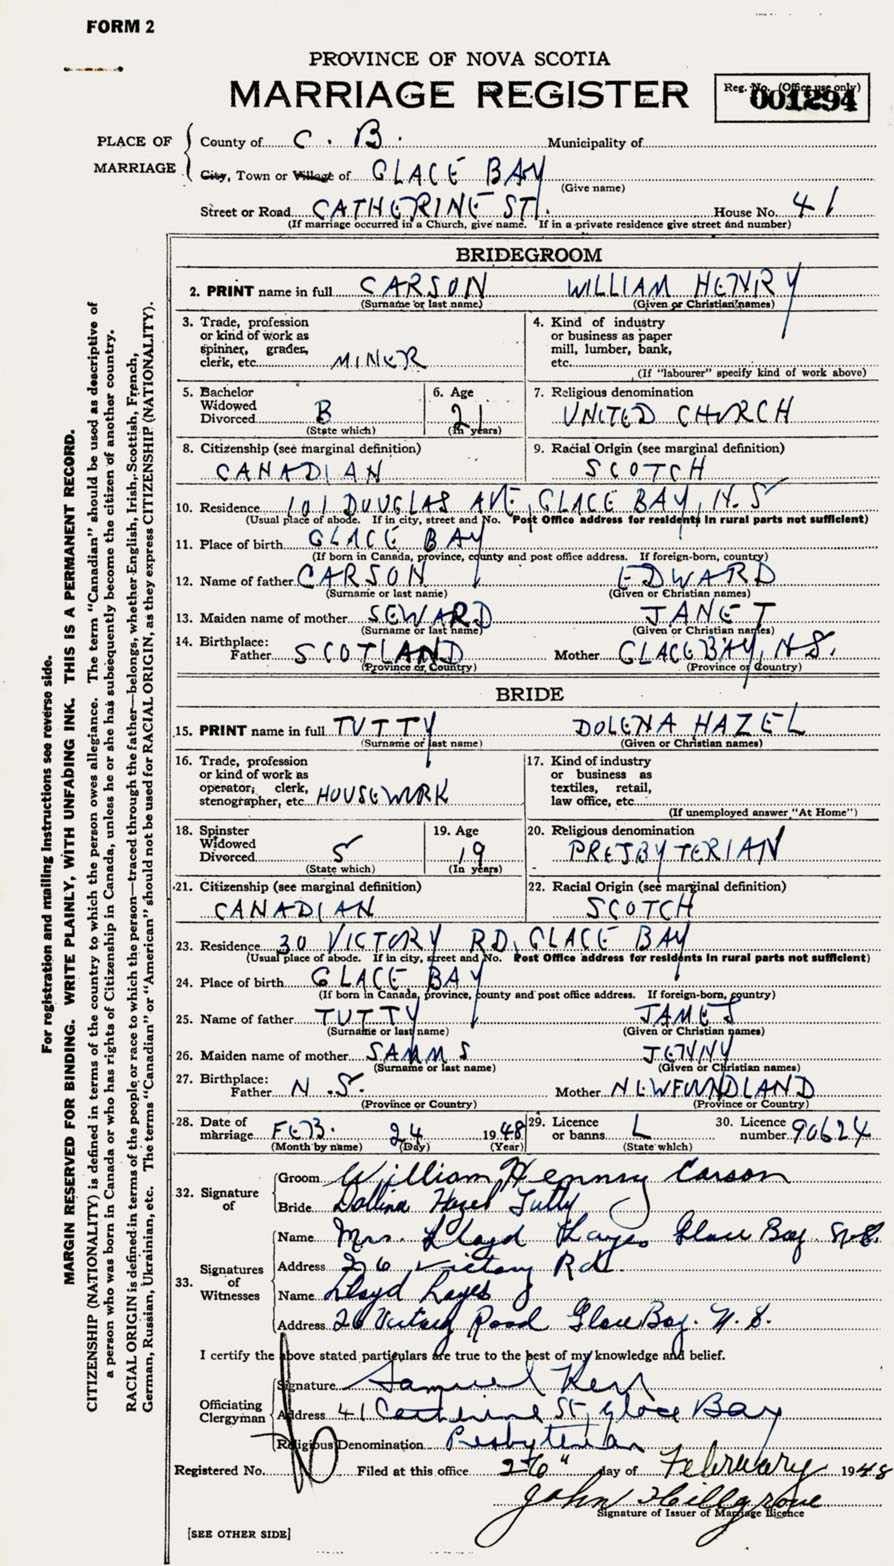 FORM 2
PROVINCE OF NOVA SCOTIA
MARRIAGE REGISTER
Reg. No. (Office use only)
001294
PLACE OF MARRIAGE
County of C. B. Municipality of
City, Town or Village of GLACE BAY
(Give name)
Street or Road CATHERINE ST. House No. 41
(If marriage occurred in a Church, give name. If in a private residence give street and number)
BRIDEGROOM
2. PRINT name in full CARSON WILLIAM HENRY
(Surname or last name) (Given or Christian names)
3. Trade, profession or kind of work as spinner, grader, clerk, etc. MINER
4. Kind of industry or business as paper mill, lumber, bank, etc.
(If "labourer" specify kind of work above)
5. Bachelor Widowed Divorced B
(State which)
6. Age 21
(In years)
7. Religious denomination
UNITED CHURCH
8. Citizenship (see marginal definition)
CANADIAN
9. Racial Origin (see marginal definition)
SCOTCH
10. Residence 101 DOUGLAS AVE, GLACE BAY, N. S
(Usual place of abode. If in city, street and No. Post Office address for residents in rural parts not sufficient)
11. Place of birth GLACE BAY
(If born in Canada, province, county and post office address. If foreign-born, country)
12. Name of father CARSON EDWARD
(Surname or last name) (Given or Christian names)
13. Maiden name of mother SEWARD JANET
(Surname or last name) (Given or Christian names)
14. Birthplace:
Father SCOTLAND Mother GLACE BAY, N.S.
(Province or Country) (Province or Country)
BRIDE
15. PRINT name in full TUTTY DOLENA HAZEL
(Surname or last name) (Given or Christian names)
16. Trade, profession or kind of work as operator, clerk, stenographer, etc. HOUSEWORK
17. Kind of industry or business as textiles, retail, law office, etc.
(If unemployed answer "At Home")
18. Spinster Widowed Divorced S
(State which)
19. Age 19
(In years)
20. Religious denomination
PRESBYTERIAN
21. Citizenship (see marginal definition)
CANADIAN
22. Racial Origin (see marginal definition)
SCOTCH
23. Residence 30 VICTORY RD, GLACE BAY
(Usual place of abode. If in city, street and No. Post Office address for residents in rural parts not sufficient)
24. Place of birth GLACE BAY
(If born in Canada, province, county and post office address. If foreign-born, country)
25. Name of father TUTTY JAMES
(Surname or last name) (Given or Christian names)
26. Maiden name of mother SAMMS JENNY
(Surname or last name) (Given or Christian names)
27. Birthplace:
Father N.S. Mother NEWFOUNDLAND
(Province or Country) (Province or Country)
28. Date of marriage FEB. 24 1948
(Month by name) (Day) (Year)
29. Licence or banns L
(State which)
30. Licence number 90624
32. Signature of
Groom William Henry Carson
Bride Dollina Hazel Tutty
33. Signatures of Witnesses
Name Mrs. Lloyd Glace Bay. N.S.
Address 26 Victory Rd.
Name Lloyd
Address 26 Victory Road Glace Bay. N.S.
I certify the above stated particulars are true to the best of my knowledge and belief.
Officiating Clergyman
Signature Samuel Kerr
Address 41 Catherine St, Glace Bay
Religious Denomination Presbyterian
Registered No. Filed at this office 26" day of February 1948
John Hillgrove
Signature of Issuer of Marriage Licence
[SEE OTHER SIDE]
For registration and mailing instructions see reverse side.
MARGIN RESERVED FOR BINDING. WRITE PLAINLY, WITH UNFADING INK. THIS IS A PERMANENT RECORD.
CITIZENSHIP (NATIONALITY) is defined in terms of the country to which the person owes allegiance. The term "Canadian" should be used as descriptive of
a person who was born in Canada or who has rights of Citizenship in Canada, unless he or she has subsequently become the citizen of another country.
RACIAL ORIGIN is defined in terms of the people or race to which the person—traced through the father—belongs, whether English, Irish, Scottish, French,
German, Russian, Ukrainian, etc. The terms "Canadian" or "American" should not be used for RACIAL ORIGIN, as they express CITIZENSHIP (NATIONALITY).